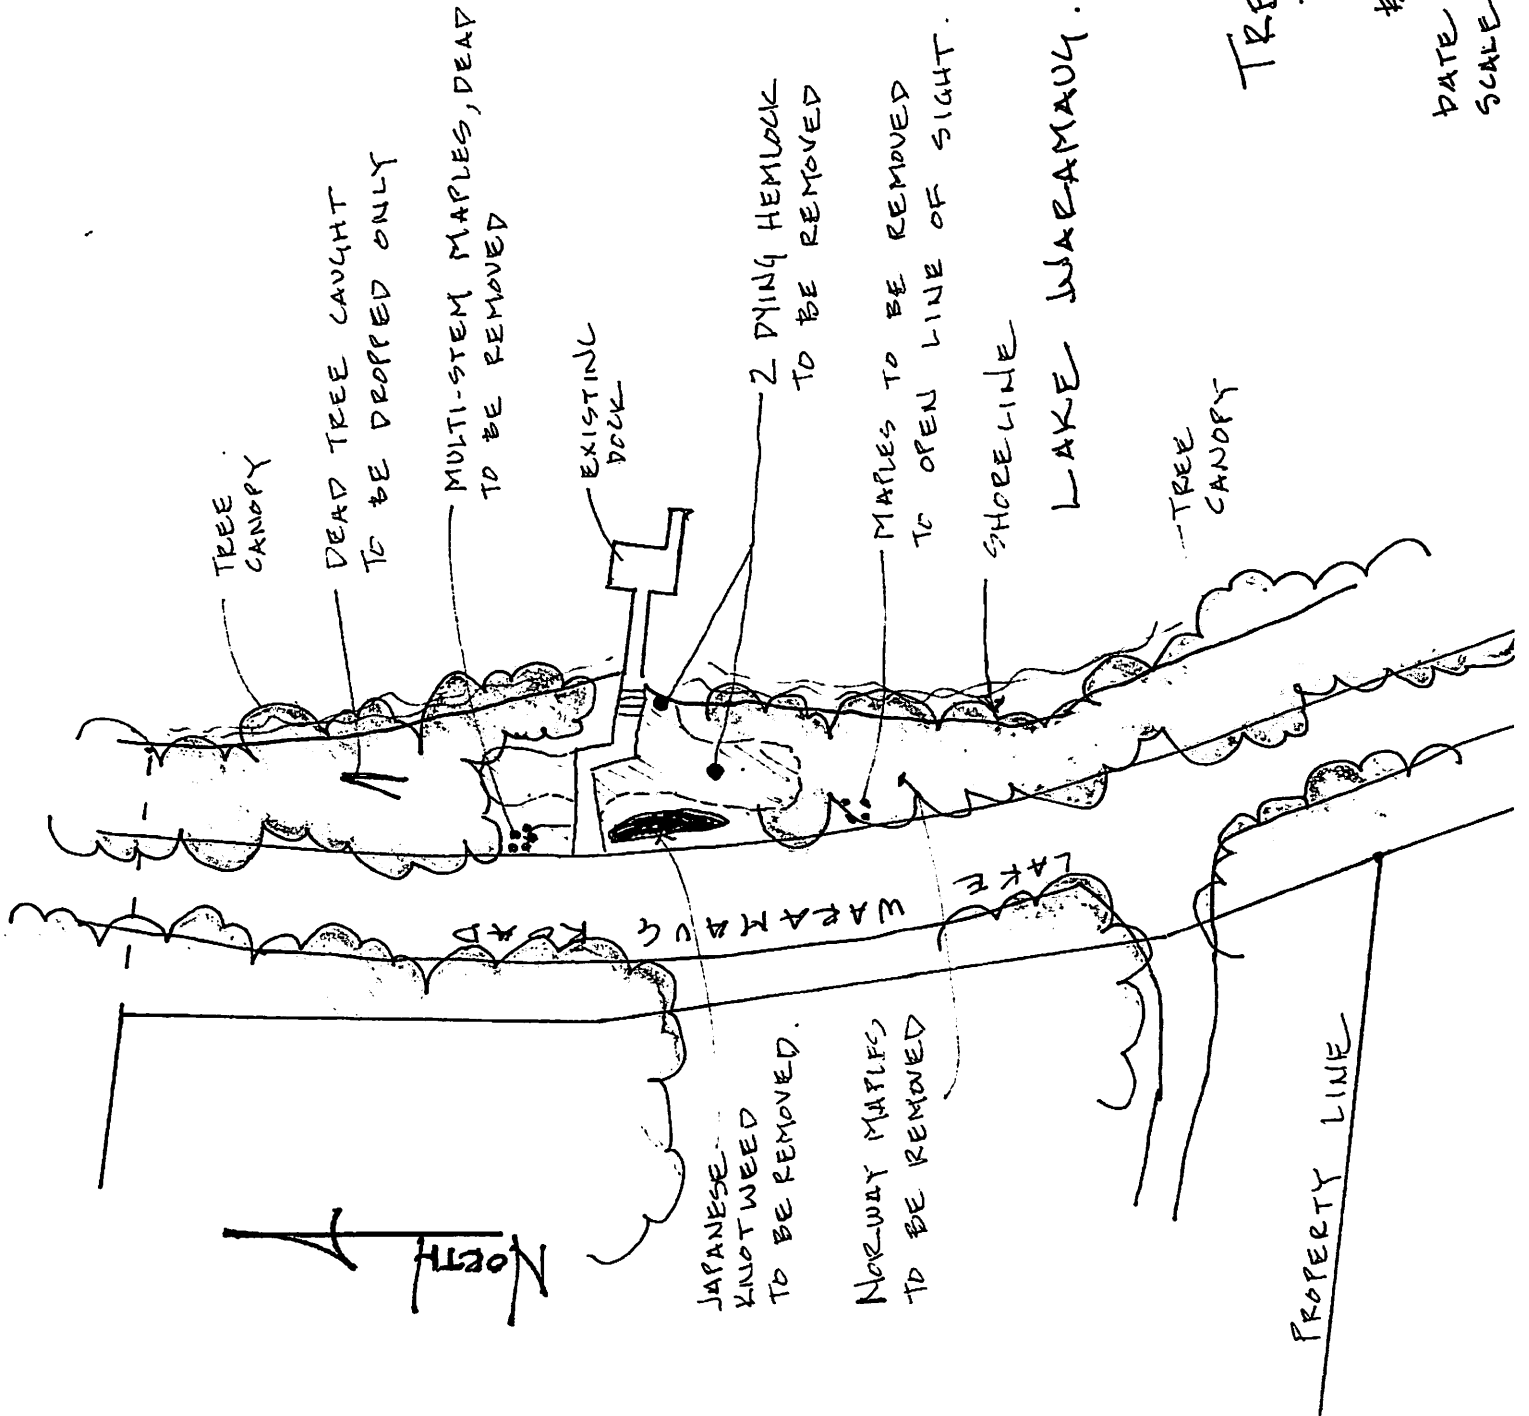 TREE
CANOPY
DEAD TREE CAUGHT
TO BE DROPPED ONLY
MULTI-STEM MAPLES, DEAD
TO BE REMOVED
EXISTING
DOCK
2 DYING HEMLOCK
TO BE REMOVED
MAPLES TO BE REMOVED
TO OPEN LINE OF SIGHT.
SHORELINE
LAKE WARAMAUG.
TREE
CANOPY
LAKE WARAMAUG ROAD
JAPANESE
KNOTWEED
TO BE REMOVED.
NORWAY MAPLES
TO BE REMOVED
PROPERTY LINE
NORTH
DATE
SCALE